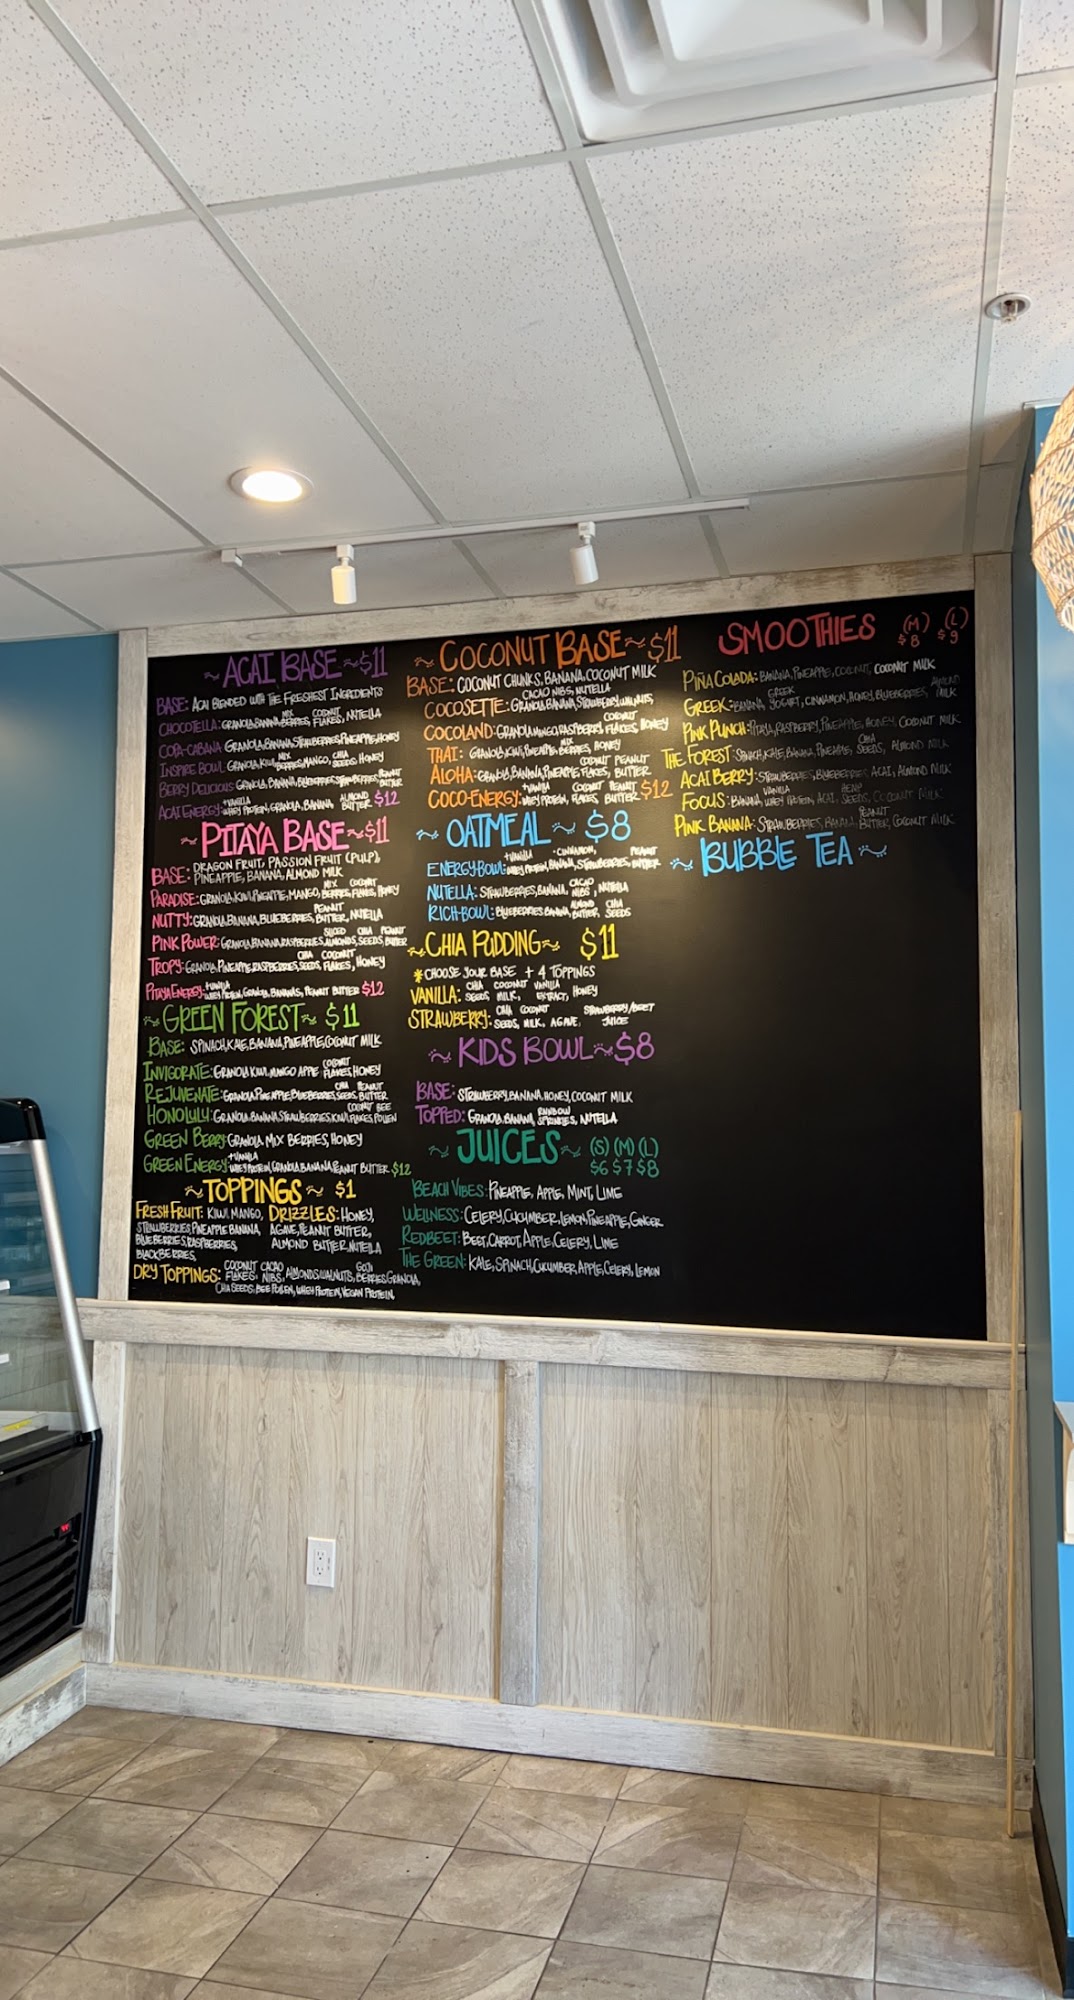 ~ ACAI BASE ~ $11
BASE: ACAI BLENDED WITH THE FRESHEST INGREDIENTS
CHOCOTELLA: GRANOLA, BANANA, MIX BERRIES, COCONUT FLAKES, NUTELLA
COPA-CABANA GRANOLA, BANANA, STRAWBERRIES, PINEAPPLE, HONEY
INSPIRE BOWL GRANOLA, KIWI, MIX BERRIES, MANGO, CHIA SEEDS, HONEY
BERRY DELICIOUS: GRANOLA, BANANA, BLUEBERRIES, STRAWBERRIES, PEANUT BUTTER
ACAI ENERGY: +VANILLA WHEY PROTEIN, GRANOLA, BANANA, ALMOND BUTTER $12
~ PITAYA BASE ~ $11
BASE: DRAGON FRUIT, PASSION FRUIT (PULP),
PINEAPPLE, BANANA, ALMOND MILK
PARADISE: GRANOLA, KIWI, PINEAPPLE, MANGO, MIX BERRIES, COCONUT FLAKES, HONEY
NUTTY: GRANOLA, BANANA, BLUEBERRIES, PEANUT BUTTER, NUTELLA
PINK POWER: GRANOLA, BANANA, RASPBERRIES, SLICED ALMONDS, CHIA SEEDS, PEANUT BUTTER
TROPY: GRANOLA, PINEAPPLE, RASPBERRIES, CHIA SEEDS, COCONUT FLAKES, HONEY
PITAYA ENERGY: +VANILLA WHEY PROTEIN, GRANOLA, BANANAS, PEANUT BUTTER $12
~ GREEN FOREST ~ $11
BASE: SPINACH, KALE, BANANA, PINEAPPLE, COCONUT MILK
INVIGORATE: GRANOLA KIWI, MANGO APPLE COCONUT FLAKES, HONEY
REJUVENATE: GRANOLA, PINEAPPLE, BLUEBERRIES, CHIA SEEDS, PEANUT BUTTER
HONOLULU: GRANOLA BANANA STRAWBERRIES, KIWI, COCONUT FLAKES, BEE POLLEN
GREEN BERRY: GRANOLA MIX BERRIES, HONEY
GREEN ENERGY: +VANILLA WHEY PROTEIN, GRANOLA, BANANA, PEANUT BUTTER $12
~ TOPPINGS ~ $1
FRESH FRUIT: KIWI, MANGO,
STRAWBERRIES, PINEAPPLE BANANA,
BLUEBERRIES, RASPBERRIES,
BLACKBERRIES,
DRIZZLES: HONEY,
AGAVE, PEANUT BUTTER,
ALMOND BUTTER, NUTELLA
DRY TOPPINGS: COCONUT FLAKES, CACAO NIBS, ALMONDS, WALNUTS, GOJI BERRIES, GRANOLA,
CHIA SEEDS, BEE POLLEN, WHEY PROTEIN, VEGAN PROTEIN,
~ COCONUT BASE ~ $11
BASE: COCONUT CHUNKS, BANANA, COCONUT MILK
COCOSETTE: GRANOLA, BANANA, STRAWBERRY, WALNUTS, CACAO NIBS, NUTELLA
COCOLAND: GRANOLA, MANGO, RASPBERRY, COCONUT FLAKES, HONEY
THAI: GRANOLA, KIWI, PINEAPPLE, MIX BERRIES, HONEY
ALOHA: GRANOLA, BANANA, PINEAPPLE, COCONUT FLAKES, PEANUT BUTTER
COCO-ENERGY: +VANILLA WHEY PROTEIN, COCONUT FLAKES, PEANUT BUTTER $12
~ OATMEAL ~ $8
ENERGY-BOWL: +VANILLA WHEY PROTEIN, BANANA, CINNAMON, STRAWBERRIES, PEANUT BUTTER
NUTELLA: STRAWBERRIES, BANANA, CACAO NIBS, NUTELLA
RICH-BOWL: BLUEBERRIES BANANA, ALMOND BUTTER, CHIA SEEDS
~ CHIA PUDDING ~ $11
* CHOOSE YOUR BASE + 4 TOPPINGS
VANILLA: CHIA SEEDS, COCONUT MILK, VANILLA EXTRACT, HONEY
STRAWBERRY: CHIA SEEDS, COCONUT MILK, AGAVE, STRAWBERRY/BEET JUICE
~ KIDS BOWL ~ $8
BASE: STRAWBERRY, BANANA, HONEY, COCONUT MILK
TOPPED: GRANOLA, BANANA, RAINBOW SPRINKLES, NUTELLA
~ JUICES ~ (S) (M) (L)
$6 $7 $8
BEACH VIBES: PINEAPPLE, APPLE, MINT, LIME
WELLNESS: CELERY, CUCUMBER, LEMON, PINEAPPLE, GINGER
REDBEET: BEET, CARROT, APPLE, CELERY, LIME
THE GREEN: KALE, SPINACH, CUCUMBER, APPLE, CELERY, LEMON
SMOOTHIES (M) (L)
$8 $9
PIÑA COLADA: BANANA, PINEAPPLE, COCONUT, COCONUT MILK
GREEK: BANANA, GREEK YOGURT, CINNAMON, HONEY, BLUEBERRIES, ALMOND MILK
PINK PUNCH: PITAYA, RASPBERRY, PINEAPPLE, HONEY, COCONUT MILK
THE FOREST: SPINACH, KALE, BANANA, PINEAPPLE, CHIA SEEDS, ALMOND MILK
ACAI BERRY: STRAWBERRIES, BLUEBERRIES, ACAI, ALMOND MILK
FOCUS: BANANA, VANILLA WHEY PROTEIN, ACAI, HEMP SEEDS, COCONUT MILK
PINK BANANA: STRAWBERRIES, BANANA, PEANUT BUTTER, COCONUT MILK
~ BUBBLE TEA ~